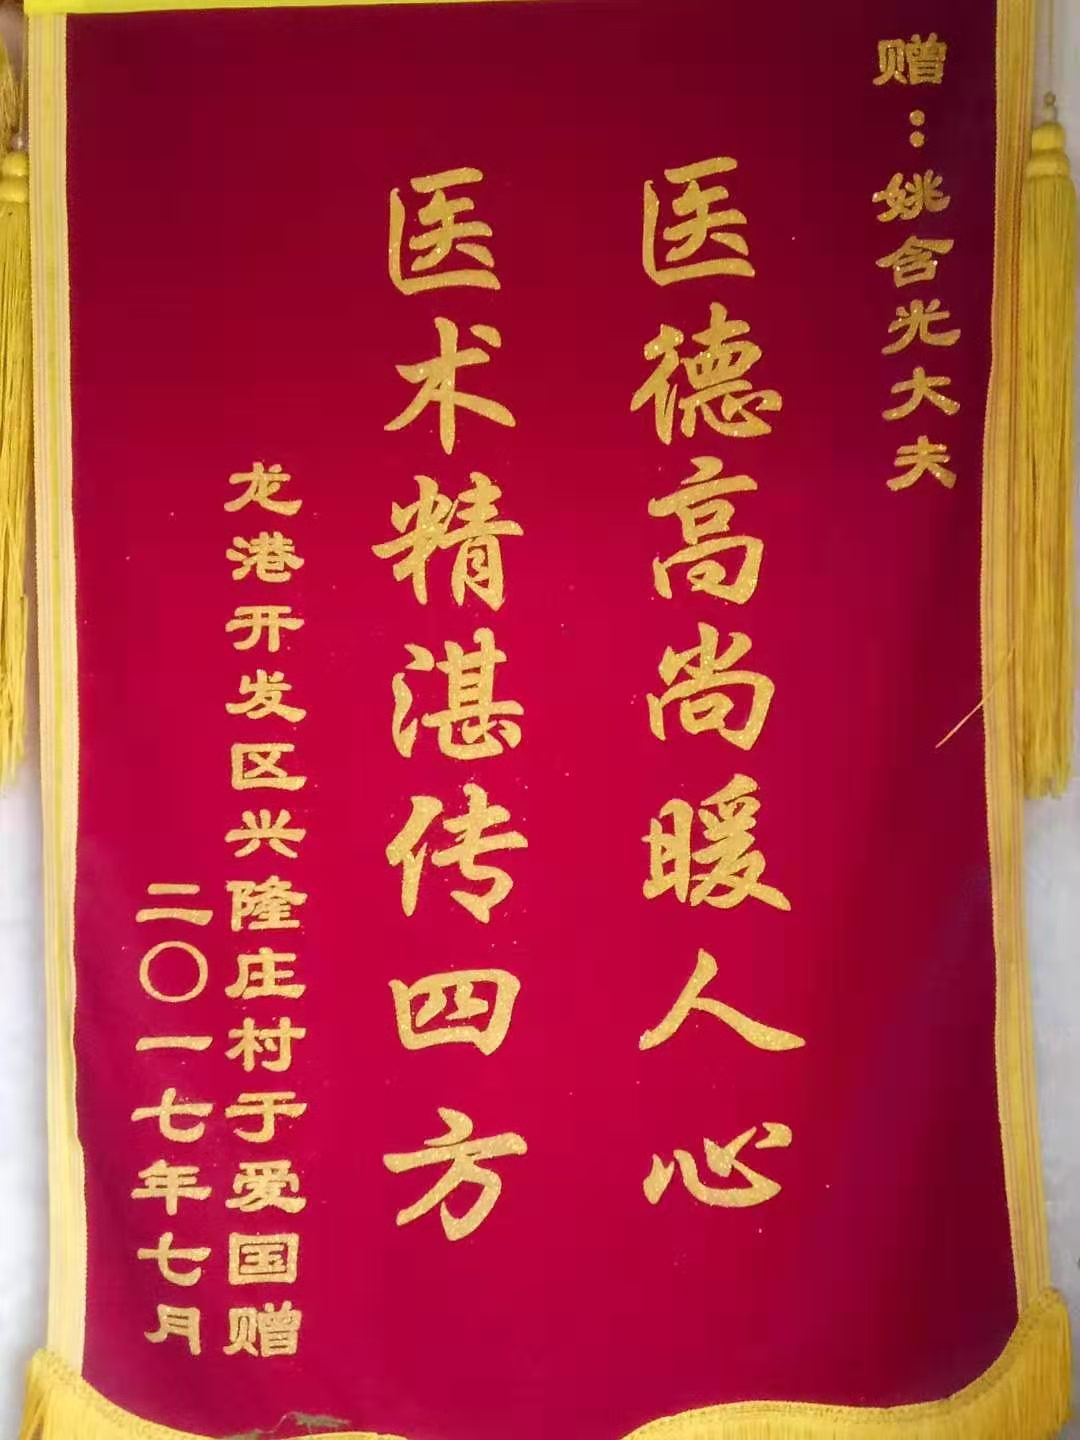 赠：姚含光大夫
医德高尚暖人心
医术精湛传四方
龙港开发区兴隆庄村于爱国赠
二〇一七年七月